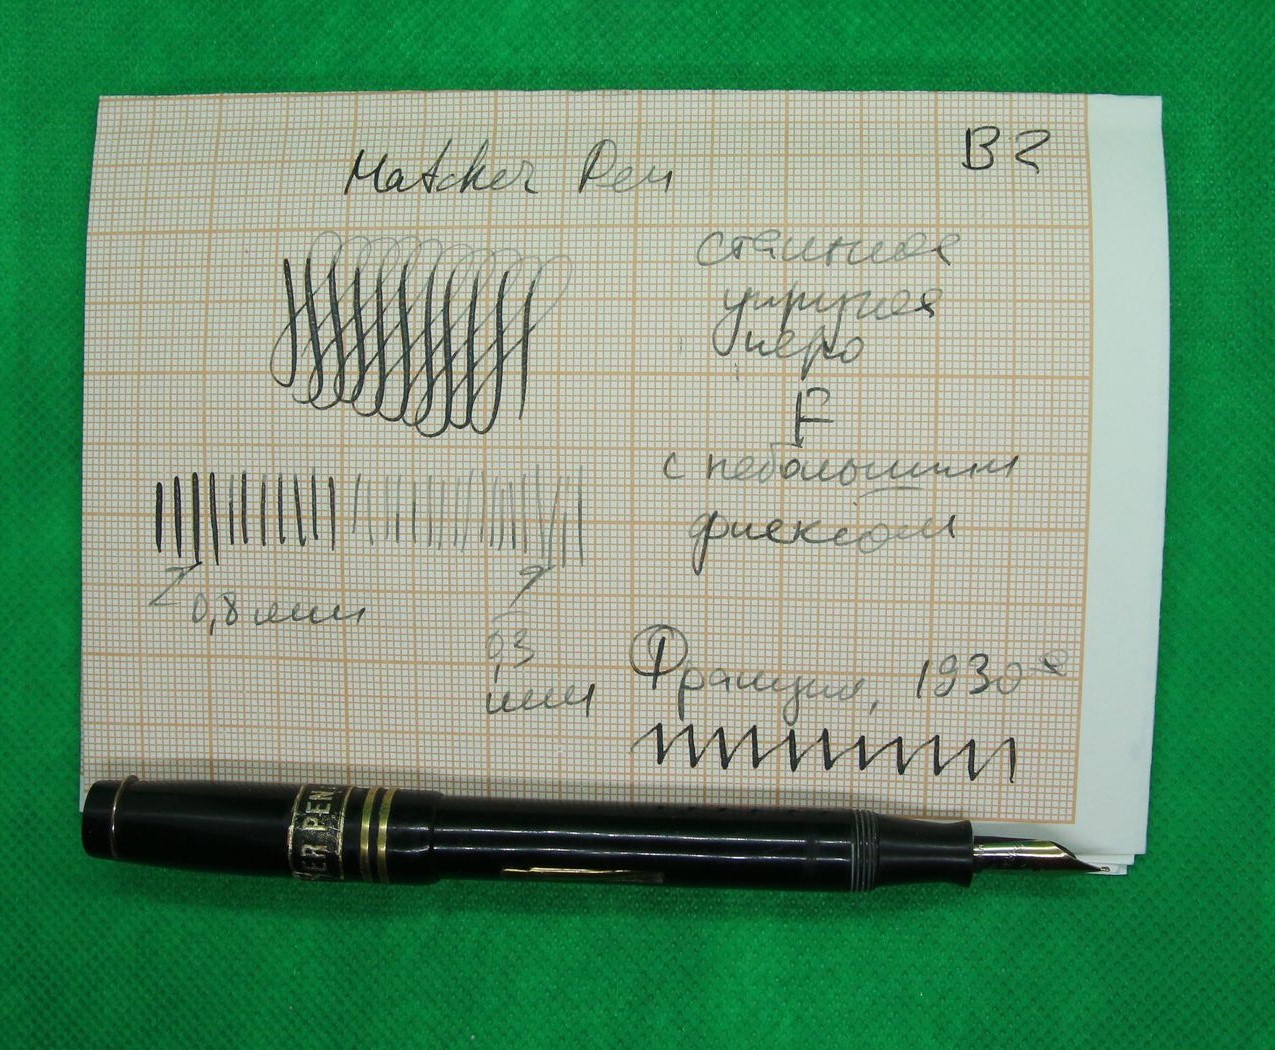 Matcher Pen
B2
стальное
упругое
перо
F
с небольшим
флексом
0,8 мм
0,3
мм
Франция, 1930-е
ER PEN